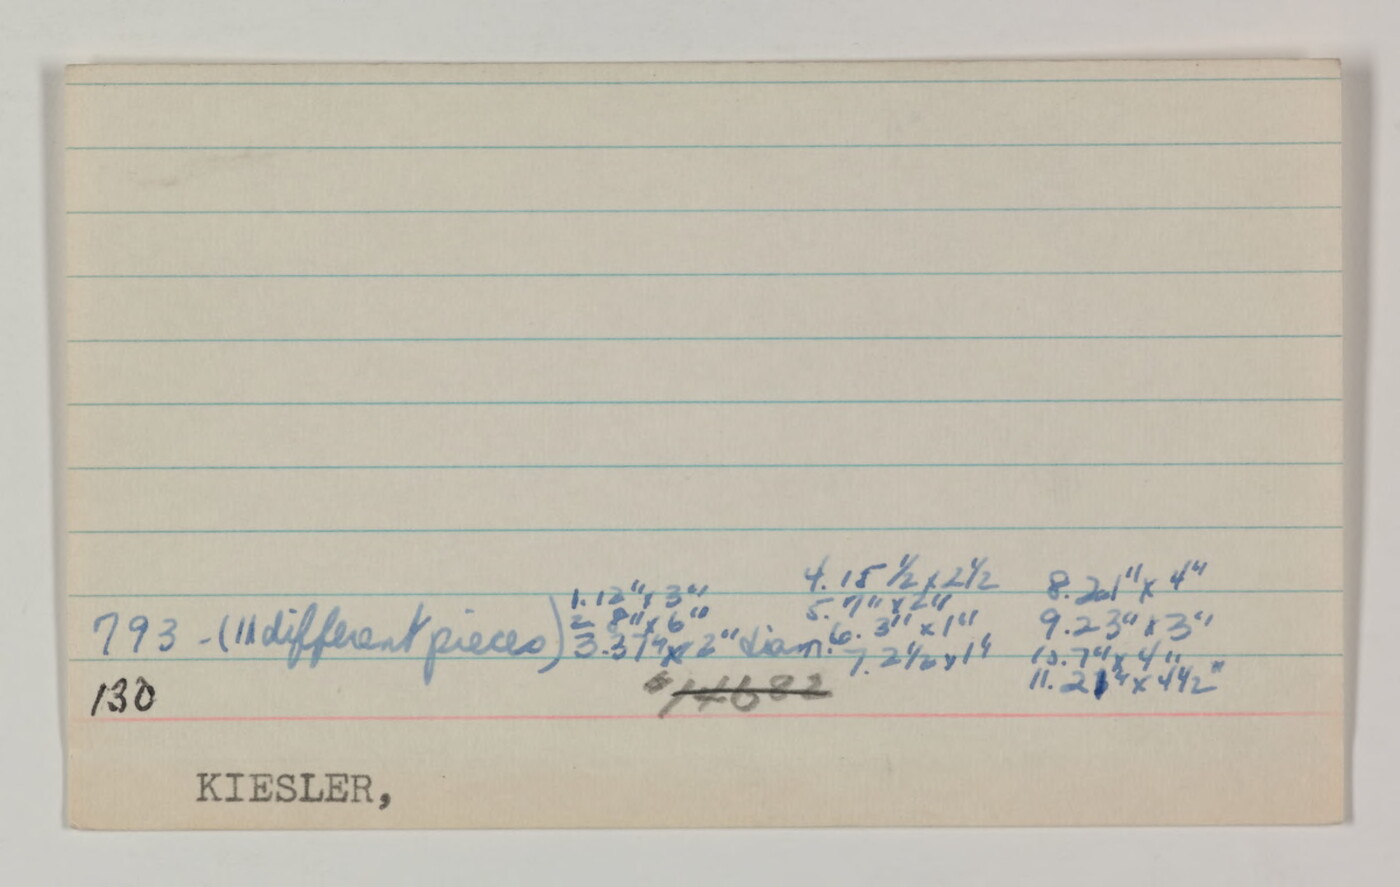 793 - (11 different pieces)
1. 12" x 3"
2. 8" x 6"
3. 37" x 2" diam.
4. 15 1/2 x 2 1/2
5. 7" x 2"
6. 3" x 1"
7. 2 1/2 x 1"
8. 21" x 4"
9. 23" x 3"
10. 7" x 4"
11. 21" x 4 1/2"
130
KIESLER,